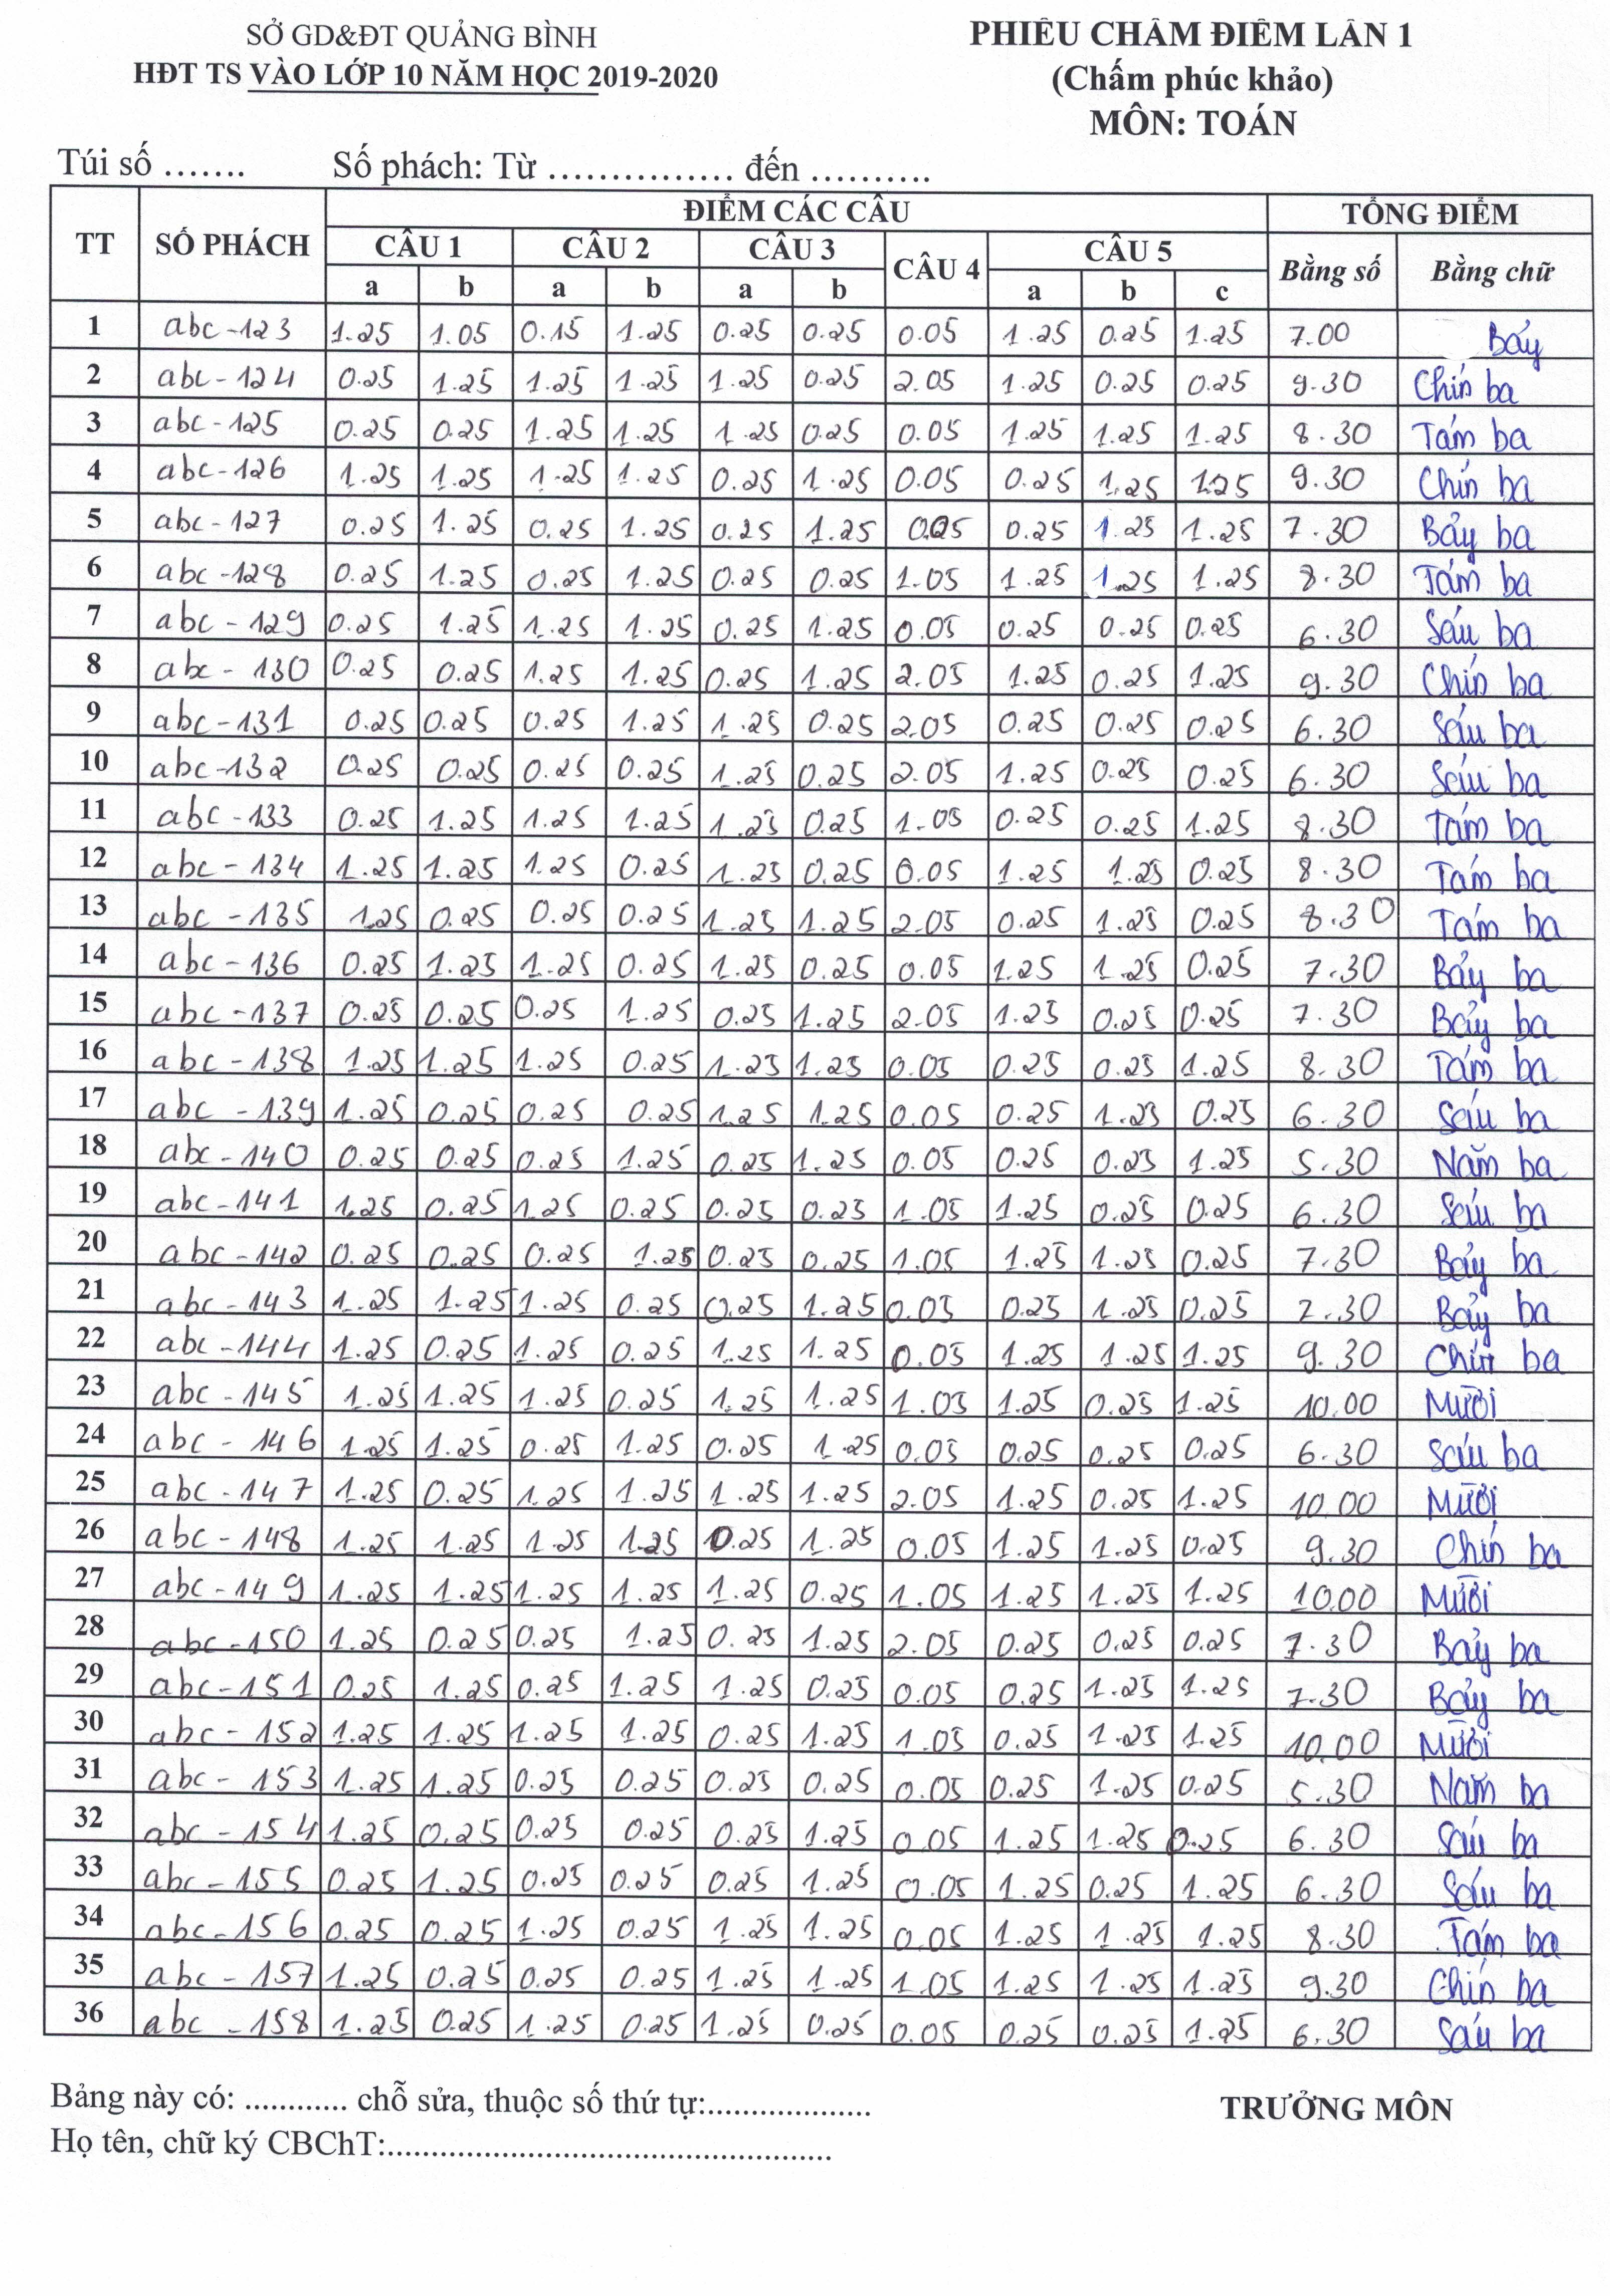 SỞ GD&ĐT QUẢNG BÌNH
HĐT TS VÀO LỚP 10 NĂM HỌC 2019-2020
PHIẾU CHẤM ĐIỂM LẦN 1
(Chấm phúc khảo)
MÔN: TOÁN
Túi số ....... Số phách: Từ ............... đến ..........
TT SỐ PHÁCH ĐIỂM CÁC CÂU TỔNG ĐIỂM
CÂU 1 CÂU 2 CÂU 3 CÂU 4 CÂU 5 Bằng số Bằng chữ
a b a b a b a b c
1 abc-123 1.25 1.05 0.15 1.25 0.25 0.25 0.05 1.25 0.25 1.25 7.00 Bảy
2 abc-124 0.25 1.25 1.25 1.25 1.25 0.25 2.05 1.25 0.25 0.25 9.30 Chín ba
3 abc-125 0.25 0.25 1.25 1.25 1.25 0.25 0.05 1.25 1.25 1.25 8.30 Tám ba
4 abc-126 1.25 1.25 1.25 1.25 0.25 1.25 0.05 0.25 1.25 1.25 9.30 Chín ba
5 abc-127 0.25 1.25 0.25 1.25 0.25 1.25 0.05 0.25 1.25 1.25 7.30 Bảy ba
6 abc-128 0.25 1.25 0.25 1.25 0.25 0.25 1.05 1.25 1.25 1.25 8.30 Tám ba
7 abc-129 0.25 1.25 1.25 1.25 0.25 1.25 0.05 0.25 0.25 0.25 6.30 Sáu ba
8 abc-130 0.25 0.25 1.25 1.25 0.25 1.25 2.05 1.25 0.25 1.25 9.30 Chín ba
9 abc-131 0.25 0.25 0.25 1.25 1.25 0.25 2.05 0.25 0.25 0.25 6.30 Sáu ba
10 abc-132 0.25 0.25 0.25 0.25 1.25 0.25 2.05 1.25 0.25 0.25 6.30 Sáu ba
11 abc-133 0.25 1.25 1.25 1.25 1.25 0.25 1.05 0.25 0.25 1.25 8.30 Tám ba
12 abc-134 1.25 1.25 1.25 0.25 1.25 0.25 0.05 1.25 1.25 0.25 8.30 Tám ba
13 abc-135 1.25 0.25 0.25 0.25 1.25 1.25 2.05 0.25 1.25 0.25 8.30 Tám ba
14 abc-136 0.25 1.25 1.25 0.25 1.25 0.25 0.05 1.25 1.25 0.25 7.30 Bảy ba
15 abc-137 0.25 0.25 0.25 1.25 0.25 1.25 2.05 1.25 0.25 0.25 7.30 Bảy ba
16 abc-138 1.25 1.25 1.25 0.25 1.25 1.25 0.05 0.25 0.25 1.25 8.30 Tám ba
17 abc-139 1.25 0.25 0.25 0.25 1.25 1.25 0.05 0.25 1.25 0.25 6.30 Sáu ba
18 abc-140 0.25 0.25 0.25 1.25 0.25 1.25 0.05 0.25 0.25 1.25 5.30 Năm ba
19 abc-141 1.25 0.25 1.25 0.25 0.25 0.25 1.05 1.25 0.25 0.25 6.30 Sáu ba
20 abc-142 0.25 0.25 0.25 1.25 0.25 0.25 1.05 1.25 1.25 0.25 7.30 Bảy ba
21 abc-143 1.25 1.25 1.25 0.25 0.25 1.25 0.05 0.25 1.25 0.25 7.30 Bảy ba
22 abc-144 1.25 0.25 1.25 0.25 1.25 1.25 0.05 1.25 1.25 1.25 9.30 Chín ba
23 abc-145 1.25 1.25 1.25 0.25 1.25 1.25 1.05 1.25 0.25 1.25 10.00 Mười
24 abc-146 1.25 1.25 0.25 1.25 0.25 1.25 0.05 0.25 0.25 0.25 6.30 Sáu ba
25 abc-147 1.25 0.25 1.25 1.25 1.25 1.25 2.05 1.25 0.25 1.25 10.00 Mười
26 abc-148 1.25 1.25 1.25 1.25 0.25 1.25 0.05 1.25 1.25 0.25 9.30 Chín ba
27 abc-149 1.25 1.25 1.25 1.25 1.25 0.25 1.05 1.25 1.25 1.25 10.00 Mười
28 abc-150 1.25 0.25 0.25 1.25 0.25 1.25 2.05 0.25 0.25 0.25 7.30 Bảy ba
29 abc-151 0.25 1.25 0.25 1.25 1.25 0.25 0.05 0.25 1.25 1.25 7.30 Bảy ba
30 abc-152 1.25 1.25 1.25 1.25 0.25 1.25 1.05 0.25 1.25 1.25 10.00 Mười
31 abc-153 1.25 1.25 0.25 0.25 0.25 0.25 0.05 0.25 1.25 0.25 5.30 Năm ba
32 abc-154 1.25 0.25 0.25 0.25 0.25 1.25 0.05 1.25 1.25 0.25 6.30 Sáu ba
33 abc-155 0.25 1.25 0.25 0.25 0.25 1.25 0.05 1.25 0.25 1.25 6.30 Sáu ba
34 abc-156 0.25 0.25 1.25 0.25 1.25 1.25 0.05 1.25 1.25 1.25 8.30 Tám ba
35 abc-157 1.25 0.25 0.25 0.25 1.25 1.25 1.05 1.25 1.25 1.25 9.30 Chín ba
36 abc-158 1.25 0.25 1.25 0.25 1.25 0.25 0.05 0.25 0.25 1.25 6.30 Sáu ba
Bảng này có: ............ chỗ sửa, thuộc số thứ tự:...................
TRƯỞNG MÔN
Họ tên, chữ ký CBChT:....................................................